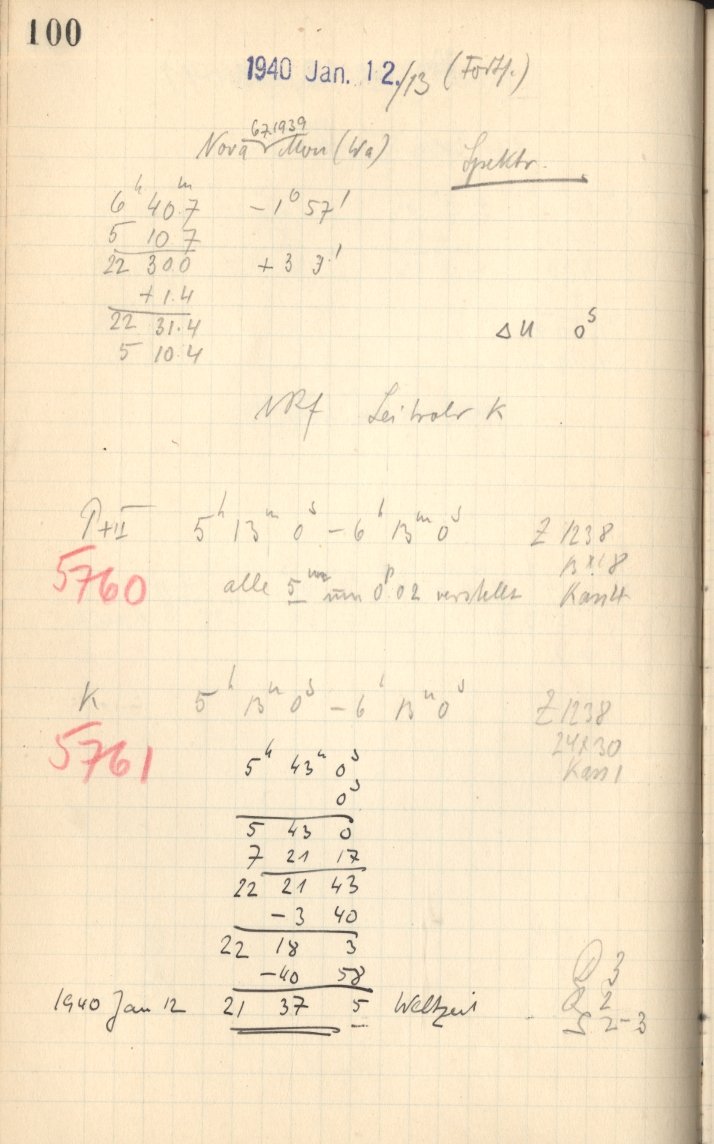 100
1940 Jan. 12./13 (Forts.)
67.1939
Nova Mon (Wa) Spektr.
6h 40.7m -1° 57'
5 10 7
22 30.0 +3 3.'
+1.4
22 31.4
5 10.4 ΔU 0s
NRf Leitrohr K
P+II 5h 13m 0s - 6h 13m 0s Z 1238
13x18
5760 alle 5m um 0p.02 verstellt Kass 4
K 5h 13m 0s - 6h 13m 0s Z 1238
24x30
5761 Kass 1
5h 43m 0s
0s
5 43 0
7 21 17
22 21 43
-3 40
22 18 3
-40 58
1940 Jan 12 21 37 5 Weltzeit
D 3
Q 2
S 2-3